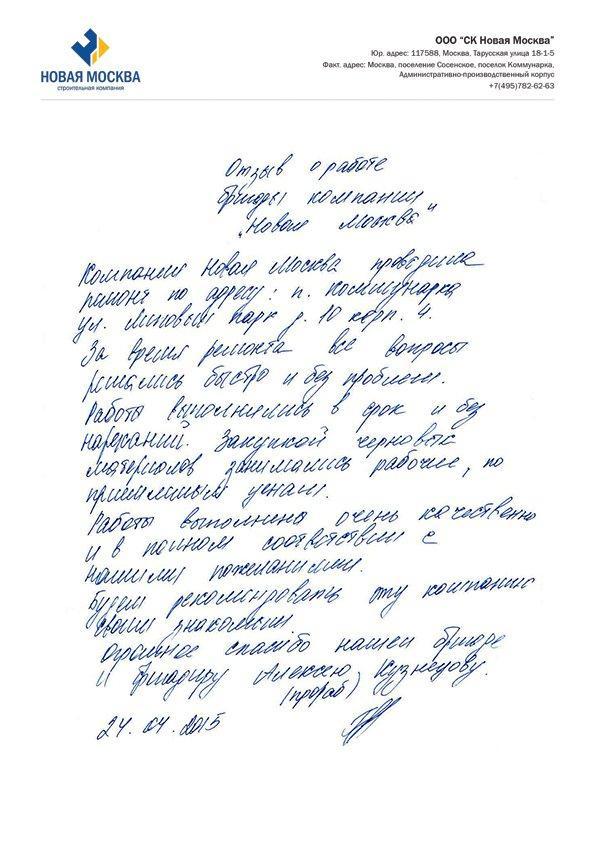 НОВАЯ МОСКВА
строительная компания
ООО "СК Новая Москва"
Юр. адрес: 117588, Москва, Тарусская улица 18-1-5
Факт. адрес: Москва, поселение Сосенское, поселок Коммунарка,
Административно-производственный корпус
+7(495)782-62-63
Отзыв о работе
бригады компании
"Новая Москва"
Компания Новая Москва проводила
ремонт по адресу: п. Коммунарка
ул. Липовый парк д. 10 корп. 4.
За время ремонта все вопросы
решались быстро и без проблем.
Работы выполнялись в срок и без
нареканий. Закупкой черновых
материалов занимались рабочие, по
приемлемым ценам.
Работы выполнены очень качественно
и в полном соответствии с
нашими пожеланиями.
Будем рекомендовать эту компанию
своим знакомым
Огромное спасибо нашей бригаде
и бригадиру Алексею Кузнецову.
(прораб)
24.04.2015